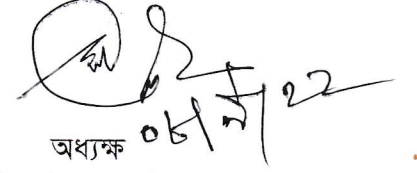 অধ্যক্ষ ০৮/৯/২২